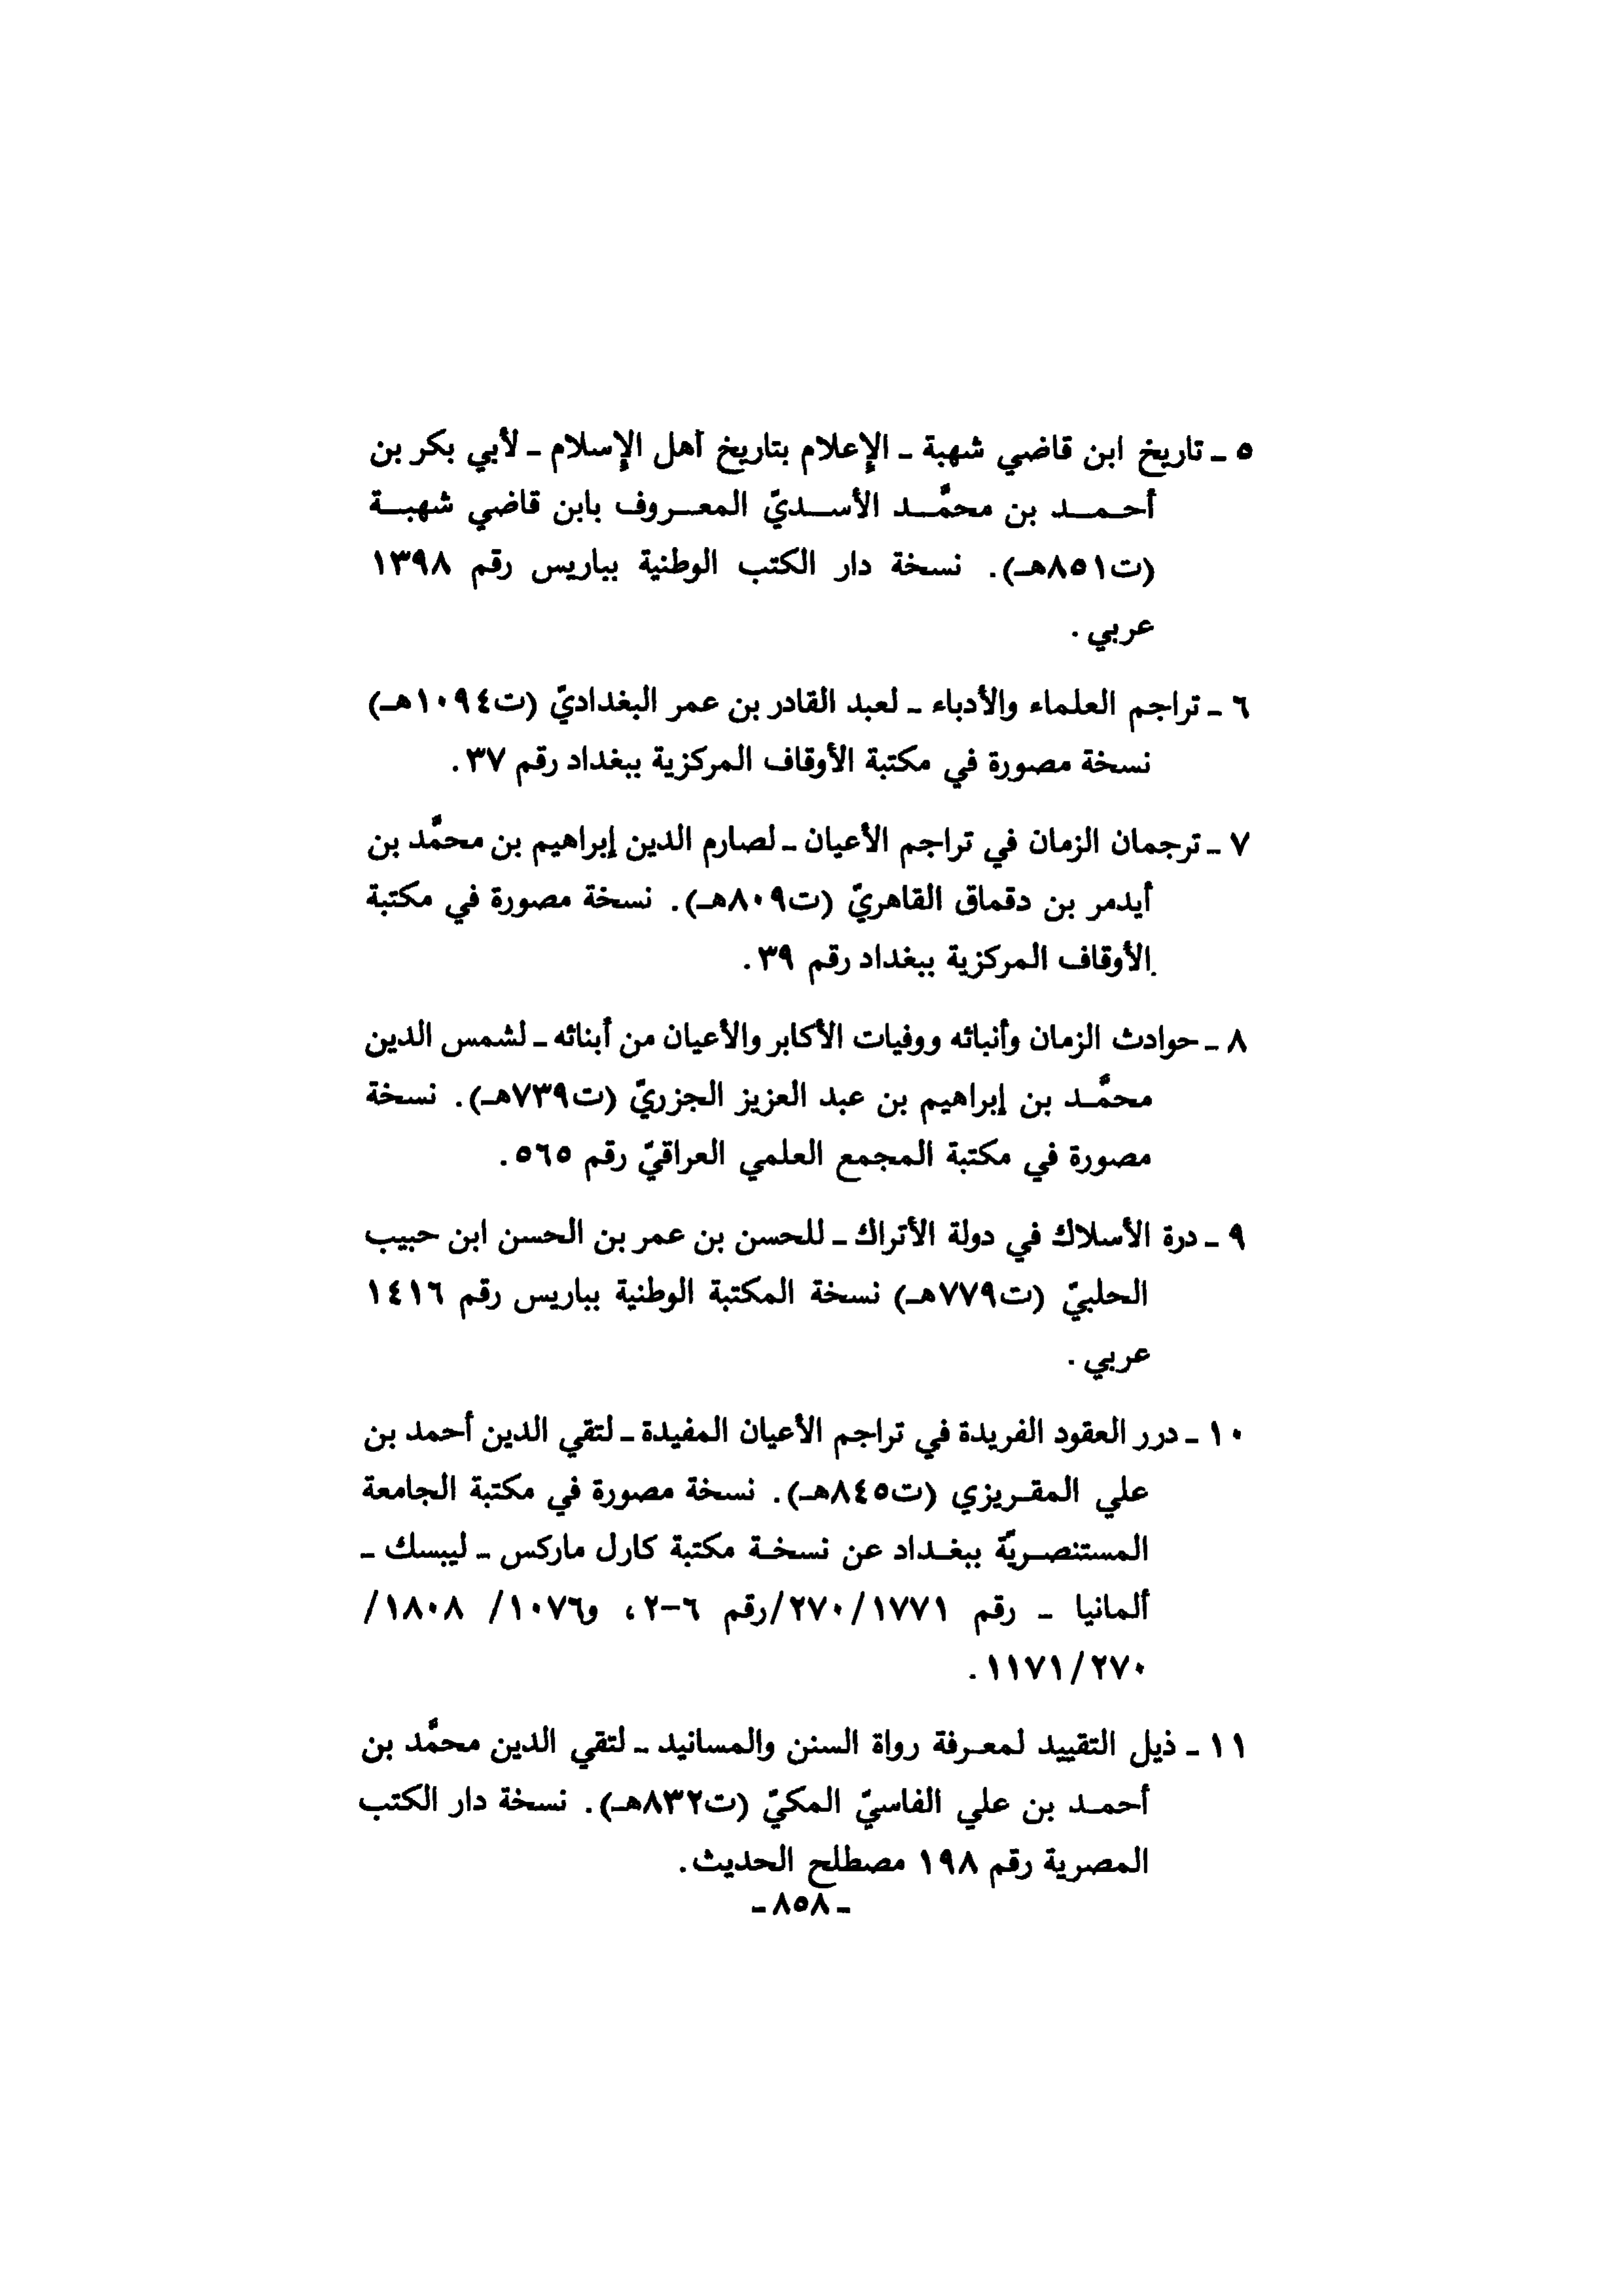 ٥ ـ تاريخ ابن قاضي شهبة ـ الإعلام بتاريخ أهل الإسلام ـ لأبي بكر بن
أحمد بن محمَّد الأسديّ المعروف بابن قاضي شهبة
(ت٨٥١هـ). نسخة دار الكتب الوطنية بباريس رقم ١٣٩٨
عربي.
٦ ـ تراجم العلماء والأدباء ـ لعبد القادر بن عمر البغداديّ (ت١٠٩٤هـ)
نسخة مصورة في مكتبة الأوقاف المركزية ببغداد رقم ٣٧.
٧ ـ ترجمان الزمان في تراجم الأعيان ـ لصارم الدين إبراهيم بن محمَّد بن
أيدمر بن دقماق القاهريّ (ت٨٠٩هـ). نسخة مصورة في مكتبة
الأوقاف المركزية ببغداد رقم ٣٩.
٨ ـ حوادث الزمان وأنبائه ووفيات الأكابر والأعيان من أبنائه ـ لشمس الدين
محمَّد بن إبراهيم بن عبد العزيز الجزريّ (ت٧٣٩هـ). نسخة
مصورة في مكتبة المجمع العلمي العراقيّ رقم ٥٦٥.
٩ ـ درة الأسلاك في دولة الأتراك ـ للحسن بن عمر بن الحسن ابن حبيب
الحلبيّ (ت٧٧٩هـ) نسخة المكتبة الوطنية بباريس رقم ١٤١٦
عربي.
١٠ ـ درر العقود الفريدة في تراجم الأعيان المفيدة ـ لتقي الدين أحمد بن
علي المقريزي (ت٨٤٥هـ). نسخة مصورة في مكتبة الجامعة
المستنصريَّة ببغداد عن نسخة مكتبة كارل ماركس ـ ليبسك ـ
ألمانيا ـ رقم ٢٧٠/١٧٧١/رقم ٦-٢، و١٠٧٦/ ١٨٠٨/
١١٧١/٢٧٠.
١١ ـ ذيل التقييد لمعرفة رواة السنن والمسانيد ـ لتقي الدين محمَّد بن
أحمد بن علي الفاسيّ المكيّ (ت٨٣٢هـ). نسخة دار الكتب
المصرية رقم ١٩٨ مصطلح الحديث.
ـ ٨٥٨ ـ